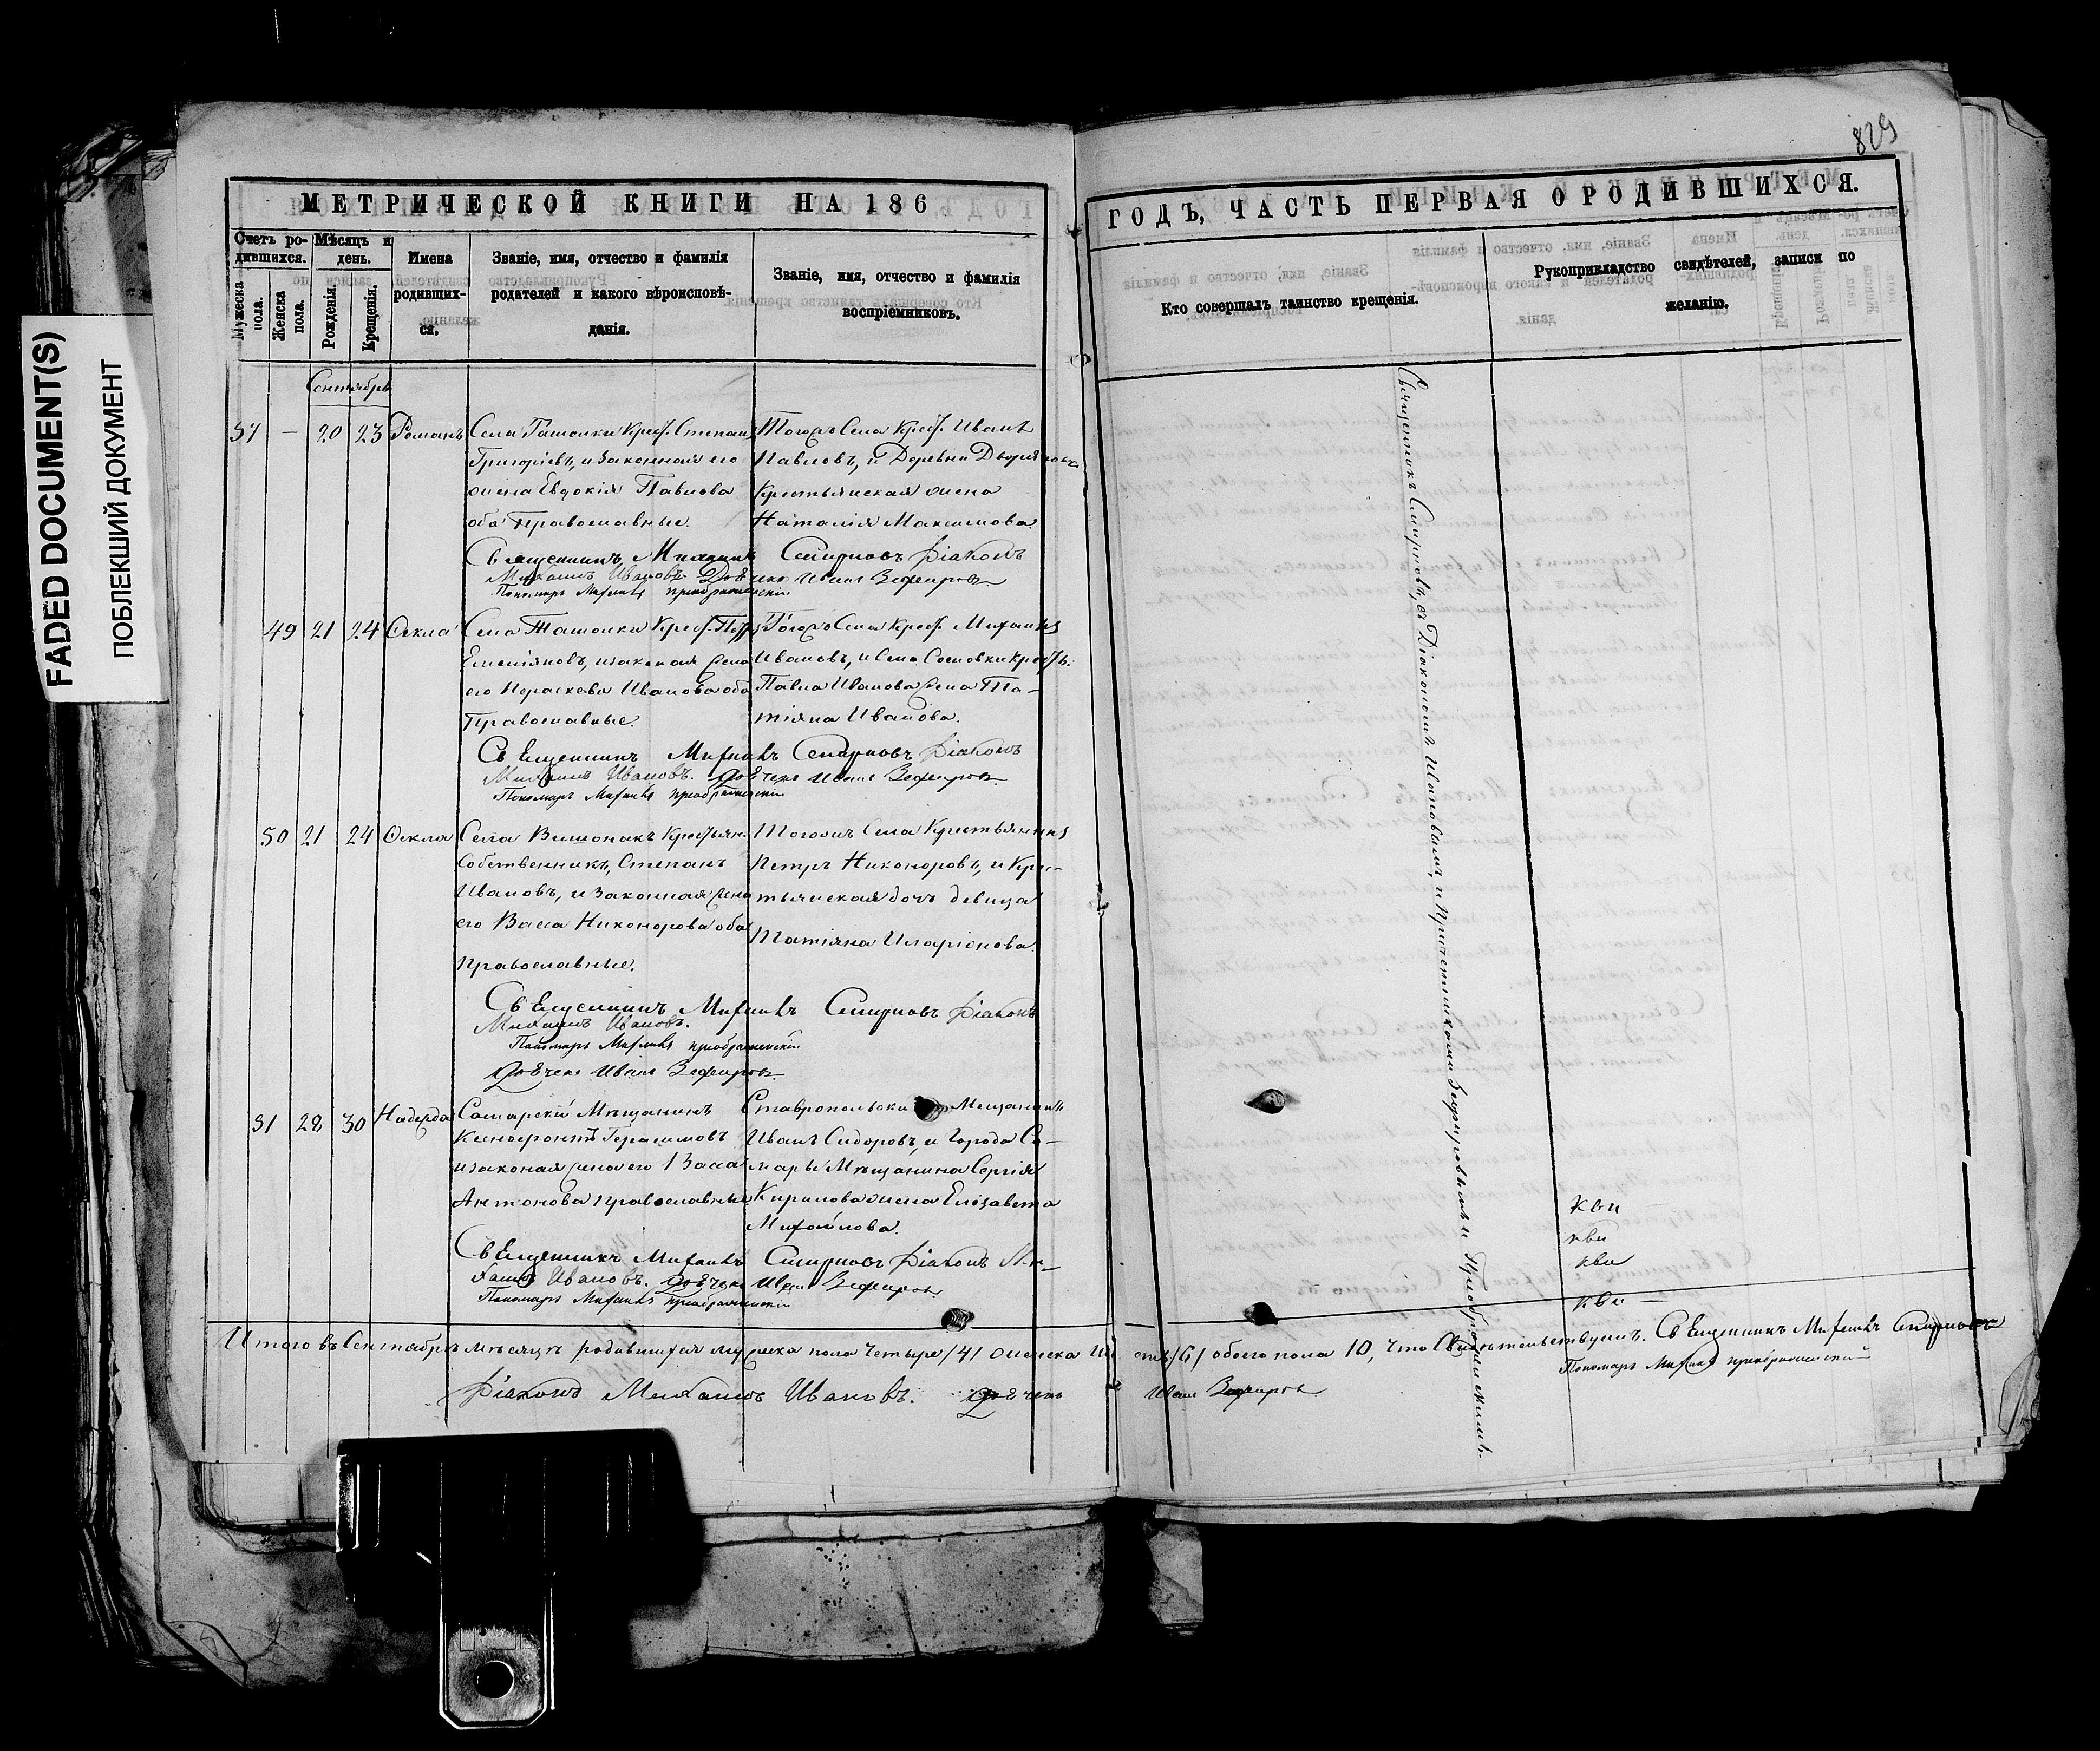 FADED DOCUMENT(S)
ПОБЛЕКШИЙ ДОКУМЕНТ
829
МЕТРИЧЕСКОЙ КНИГИ НА 186
Счетъ ро-
дившихся.
Мужеска
пола.
Женска
пола.
Мѣсяцъ и
день.
Рожденія.
Крещенія.
Имена
родивших-
ся.
Званіе, имя, отчество и фамилія
родителей и какого вѣроисповѣ-
данія.
Званіе, имя, отчество и фамилія
воспріемниковъ.
ГОДЪ, ЧАСТЬ ПЕРВАЯ О РОДИВШИХСЯ.
Кто совершалъ таинство крещенія.
Рукоприкладство свидѣтелей, записи по
желанію.
Сентябрь
57 — 20 23 Романъ
Села Ташолки Крест. Степанъ
Григорьевъ, и законная его
жена Евдокія Павлова
оба Православные.
Тогожъ Села Крест. Иванъ
Павловъ, и Деревни
Крестьянская жена
Наталія Максимова
Священникъ Михаилъ Смирновъ Діаконъ
Михаилъ Ивановъ. Дьячекъ Иванъ Зефировъ
Пономарь Михаилъ Преображенскій
49 21 24 Ѳекла
Села Ташолки Крест. Петръ
Емеліяновъ, и законая жена
его Параскева Иванова оба
Православные.
Тогожъ Села Крест. Михаилъ
Ивановъ, и Села Сосновки Крестъ.
Павла Иванова жена Та-
тіяна Иванова.
Священникъ Михаилъ Смирновъ Діаконъ
Михаилъ Ивановъ. Дьячекъ Иванъ Зефировъ
Пономарь Михаилъ Преображенскій
50 21 24 Ѳекла
Села Крестьян.
Собственникъ, Степанъ
Ивановъ, и Законная жена
его Васса Никонорова оба
Православные.
Тогожъ Села Крестьянинъ
Петръ Никоноровъ, и Крес-
тьянская дочь девица
Татіяна Иларіонова.
Священникъ Михаилъ Смирновъ Діаконъ
Михаилъ Ивановъ.
Пономарь Михаилъ Преображенскій
Дьячекъ Иванъ Зефировъ
51 28 30 Надежда
Самарскій Мѣщанинъ
Ксенофонтъ Герасимовъ
и законая жена его Васса
Антонова православные
Ставропольскій Мещанинъ
Иванъ Сидоровъ, и Города Са-
мары Мѣщанина Сергія
Кирилова жена Елізавета
Михайлова.
Священникъ Михаилъ Смирновъ Діаконъ Ми-
хаилъ Ивановъ. Дьячекъ Иванъ Зефировъ
Пономарь Михаилъ Преображенскій
Священникъ Смирновъ, съ Діакономъ Ивановымъ, и Причетниками Зефировымъ и Преображенскимъ.
кви
кви
кви
кви —
Итого въ Сентябрѣ мѣсяцѣ родившихся мужеска пола четыре /4/ женска /6/ обоего пола 10, что Свидѣтельствуемъ. Священникъ Михаилъ Смирновъ
Пономарь Михаилъ Преображенскій
Діаконъ Михаилъ Ивановъ. Дьячекъ Иванъ Зефировъ